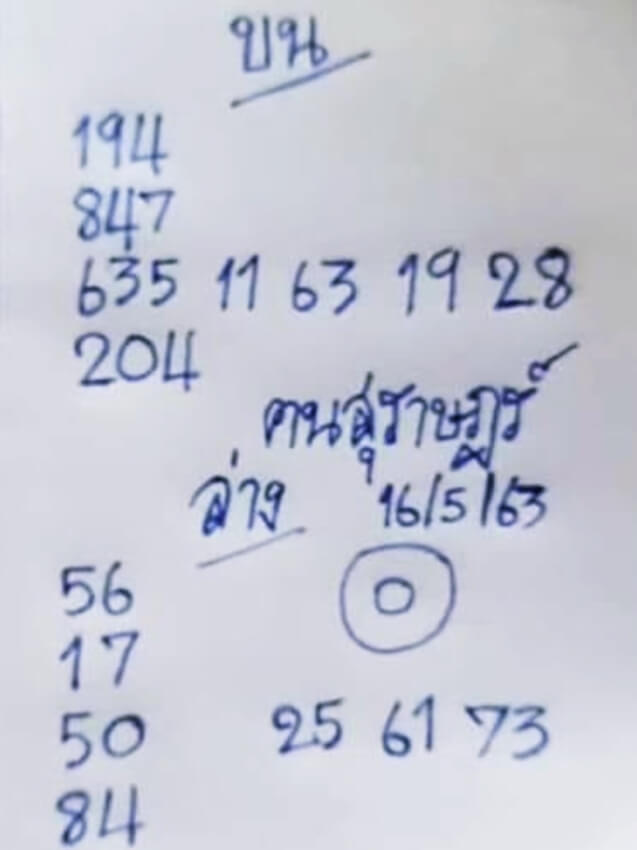 บน
194
847
635 11 63 19 28
204
คนสุราษฎร์
ล่าง 16/5/63
56
0
17
50 25 61 73
84